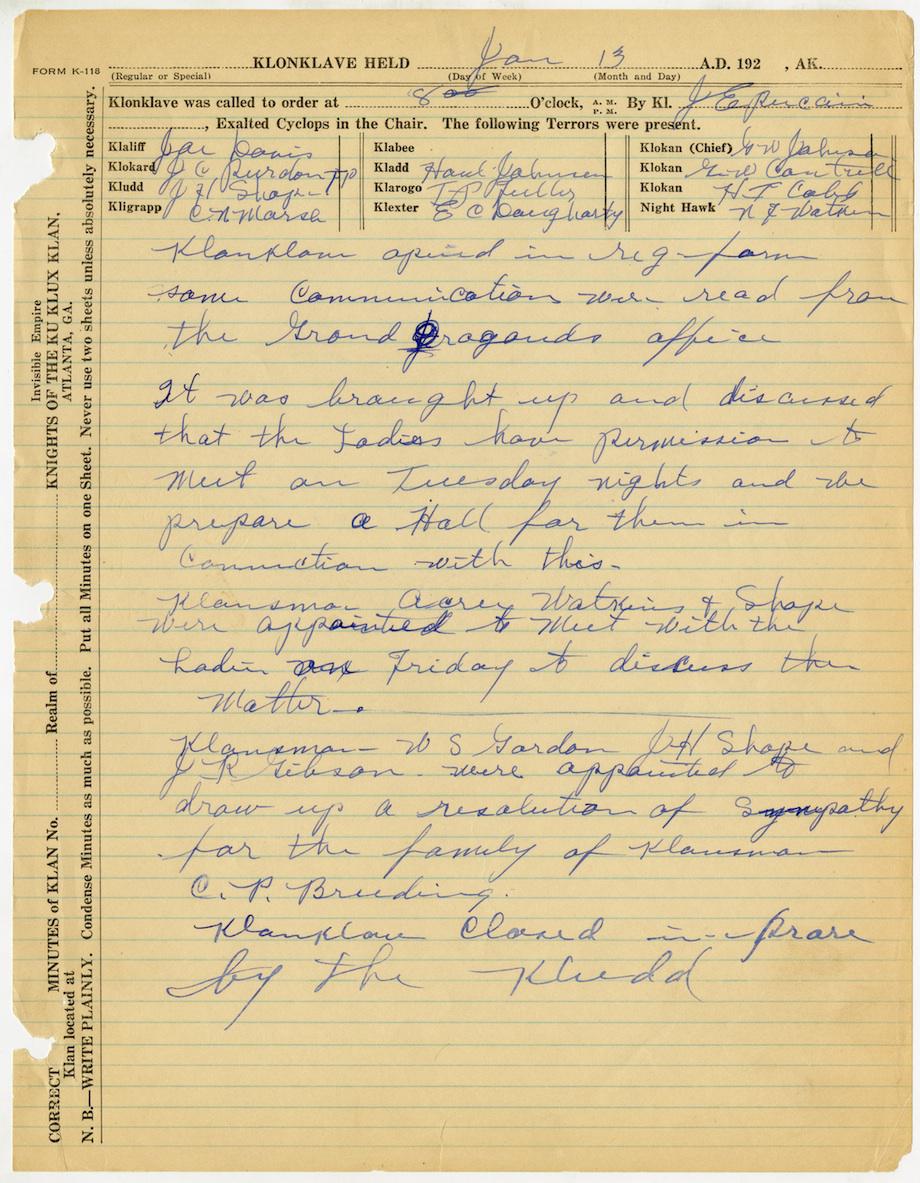 FORM K-118
KLONKLAVE HELD Jan 13 A.D. 192 , AK.
(Regular or Special) (Day of Week) (Month and Day)
Klonklave was called to order at 8 00 O'clock, A. M. P. M. By Kl. J E
, Exalted Cyclops in the Chair. The following Terrors were present.
Klaliff Joe Davis Klabee Klokan (Chief) G W Johnson
Klokard J C Purdom Kladd Johnson Klokan G. W Cantrell
Kludd J H Shope Klarogo T P Fuller Klokan H T
Kligrapp C. N Marsh Klexter E C Daugharty Night Hawk N F Watkins
INVISIBLE Empire
KNIGHTS OF THE KU KLUX KLAN,
ATLANTA, GA.
CORRECT MINUTES of KLAN No. Realm of
Klan located at
N. B.—WRITE PLAINLY. Condense Minutes as much as possible. Put all Minutes on one Sheet. Never use two sheets unless absolutely necessary.
opend in reg form
some Communication were read from
the Grand Dragonds office
It was braught up and discussed
that the Ladies have permission to
Meet on Tuesday nights and we
prepare a Hall for them in
Connection with this-
Klansman Acrey Watkins & Shope
were appointed to Meet with the
Ladies on Friday to discuss the
Matter.
Klansman W S Gordon J H Shope and
J R Gibson were appointed to
draw up a resolution of Sympathy
for the family of Klansman
C. P. Breeding.
Closed in Prare
by the Kludd